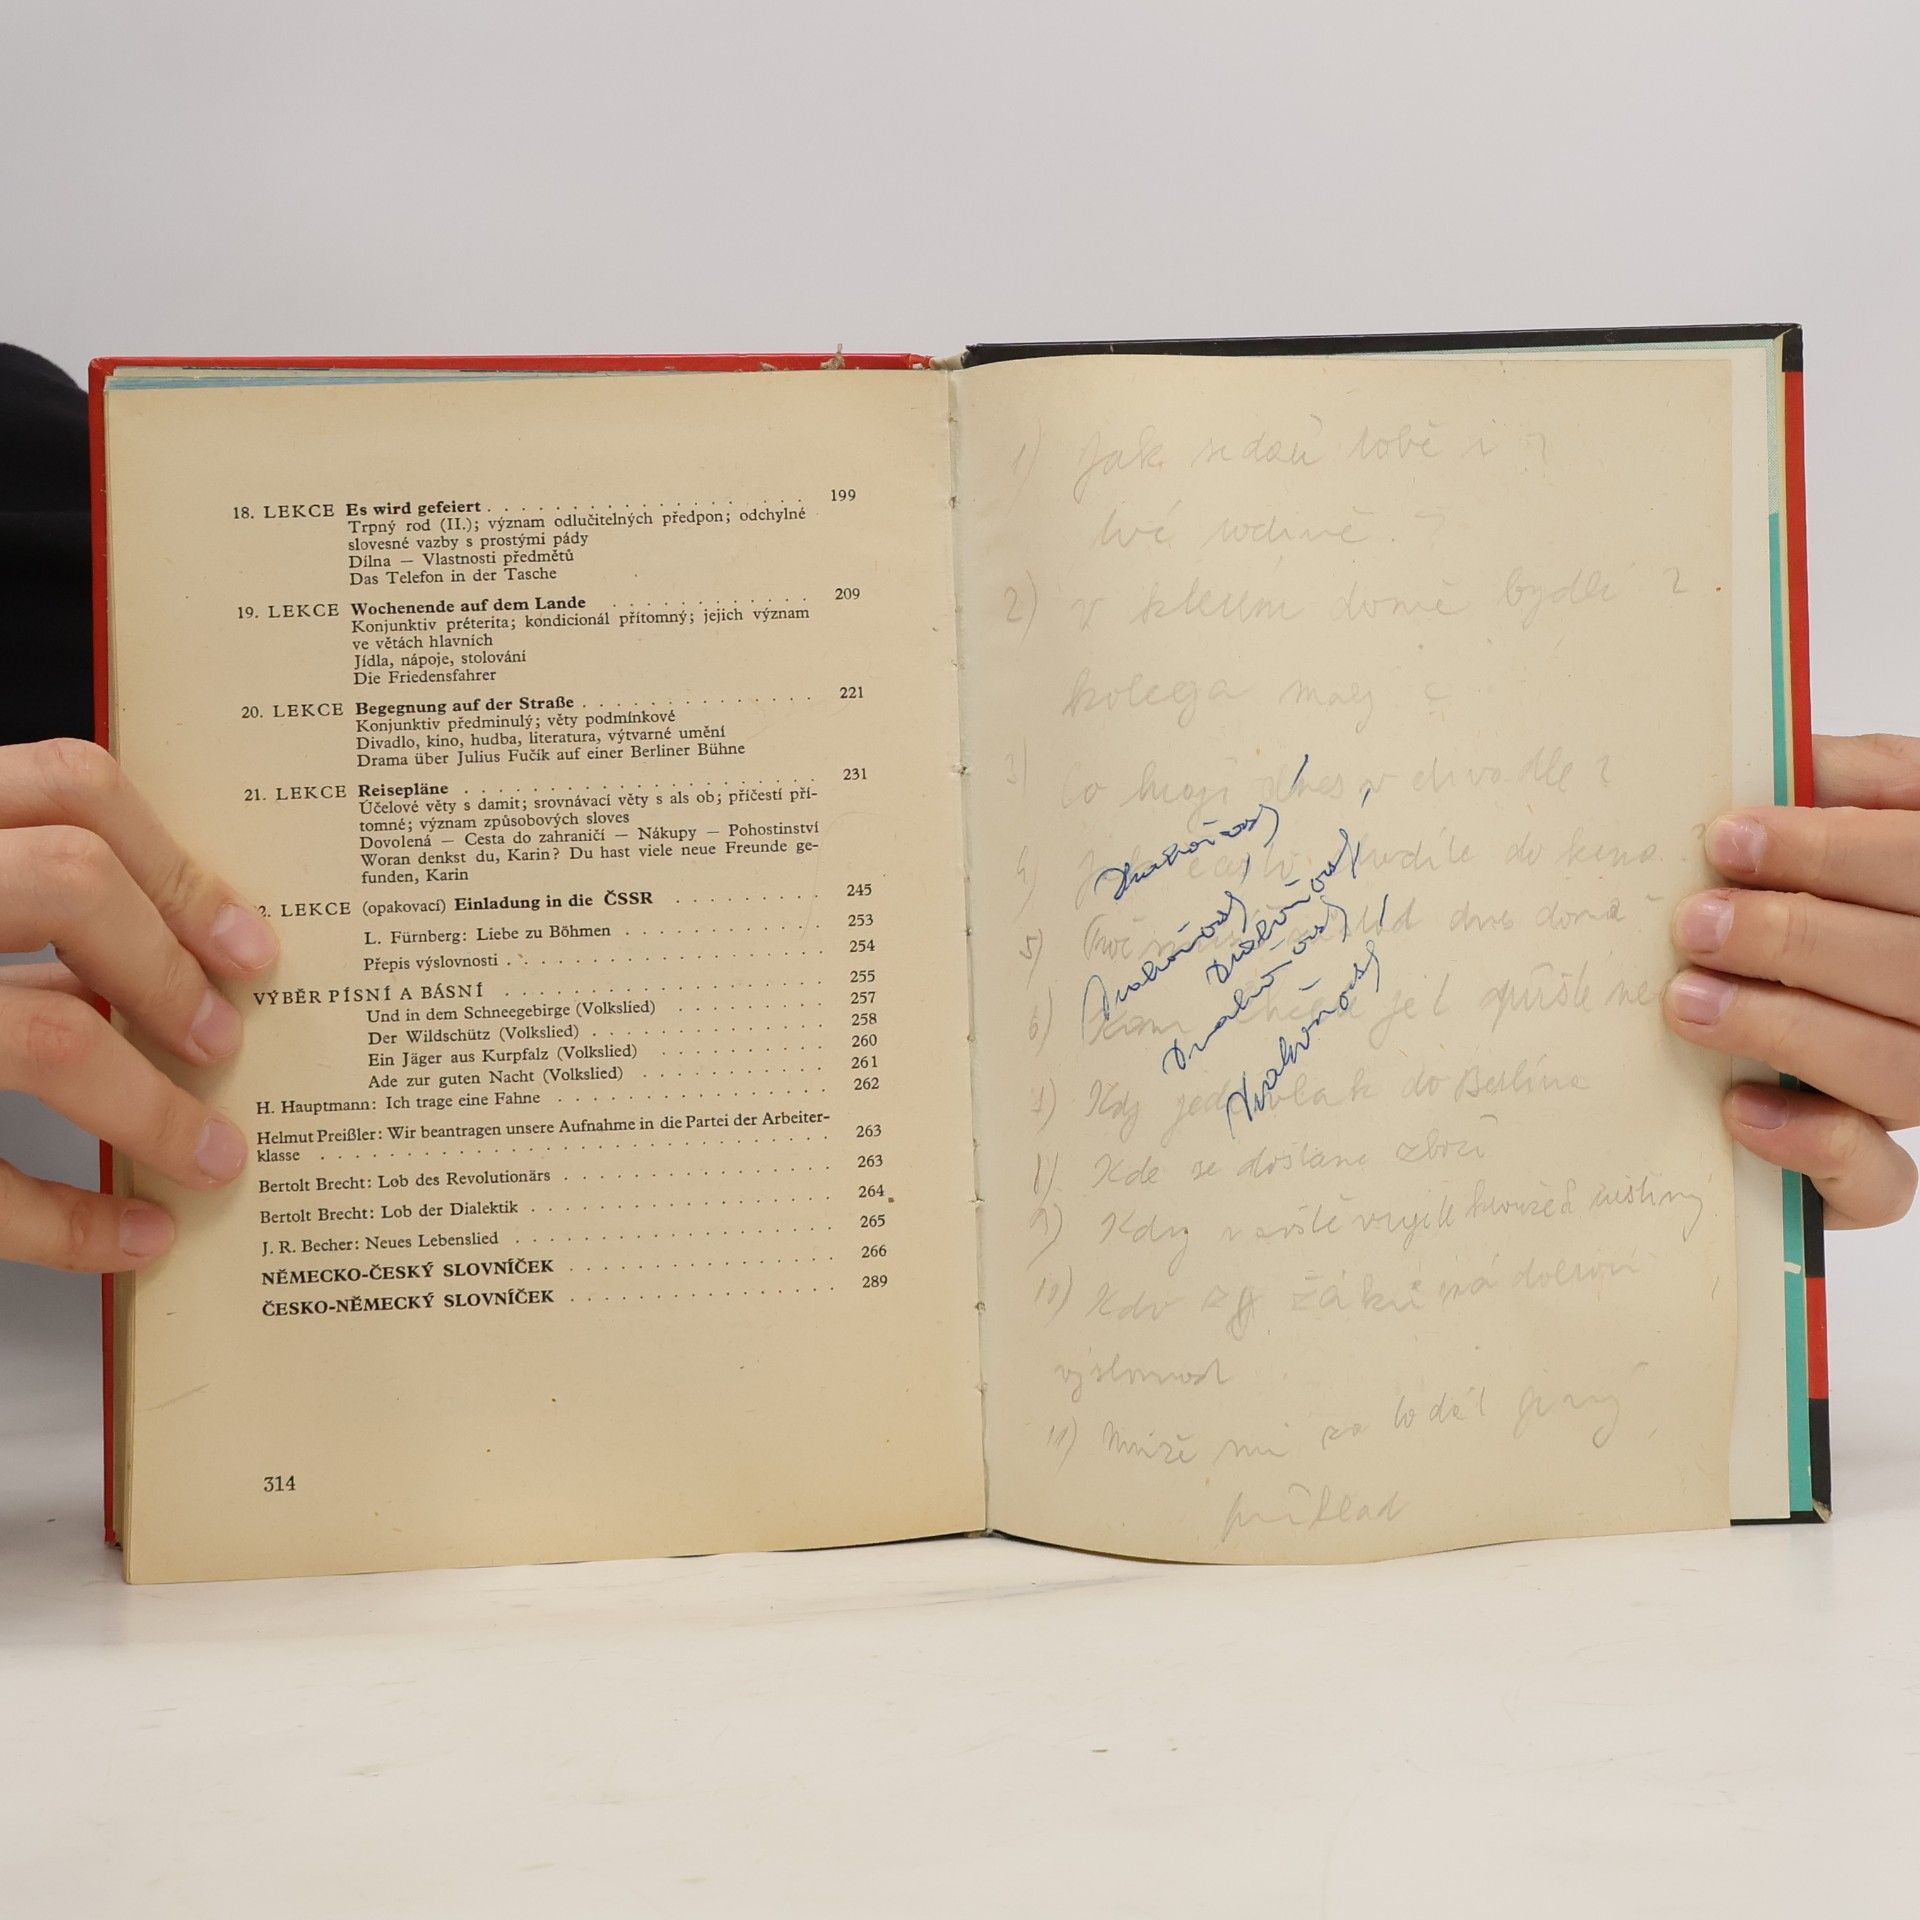 18. LEKCE Es wird gefeiert . . . . . . . . . . . . . . . . 199
Trpný rod (II.); význam odlučitelných předpon; odchylné
slovesné vazby s prostými pády
Dílna — Vlastnosti předmětů
Das Telefon in der Tasche
19. LEKCE Wochenende auf dem Lande . . . . . . . . . . . 209
Konjunktiv préterita; kondicionál přítomný; jejich význam
ve větách hlavních
Jídla, nápoje, stolování
Die Friedensfahrer
20. LEKCE Begegnung auf der Straße . . . . . . . . . . . 221
Konjunktiv předminulý; věty podmínkové
Divadlo, kino, hudba, literatura, výtvarné umění
Drama über Julius Fučík auf einer Berliner Bühne
21. LEKCE Reisepläne . . . . . . . . . . . . . . . . . . 231
Účelové věty s damit; srovnávací věty s als ob; příčestí pří-
tomné; význam způsobových sloves
Dovolená — Cesta do zahraničí — Nákupy — Pohostinství
Woran denkst du, Karin? Du hast viele neue Freunde ge-
funden, Karin
2. LEKCE (opakovací) Einladung in die ČSSR . . . . . . . . . 245
L. Fürnberg: Liebe zu Böhmen . . . . . . . . . . . 253
Přepis výslovnosti . . . . . . . . . . . . . . . . . 254
VÝBĚR PÍSNÍ A BÁSNÍ . . . . . . . . . . . . . . . . . 255
Und in dem Schneegebirge (Volkslied) . . . . . . . . . 257
Der Wildschütz (Volkslied) . . . . . . . . . . . . . 258
Ein Jäger aus Kurpfalz (Volkslied) . . . . . . . . . . 260
Ade zur guten Nacht (Volkslied) . . . . . . . . . . . 261
H. Hauptmann: Ich trage eine Fahne . . . . . . . . . . . . 262
Helmut Preißler: Wir beantragen unsere Aufnahme in die Partei der Arbeiter-
klasse . . . . . . . . . . . . . . . . . . . . . . . . . . 263
Bertolt Brecht: Lob des Revolutionärs . . . . . . . . . . . . 263
Bertolt Brecht: Lob der Dialektik . . . . . . . . . . . . . . 264
J. R. Becher: Neues Lebenslied . . . . . . . . . . . . . . . 265
NĚMECKO-ČESKÝ SLOVNÍČEK . . . . . . . . . . . . . 266
ČESKO-NĚMECKÝ SLOVNÍČEK . . . . . . . . . . . . . 289
314
1) Jak se daří tobě i
tvé rodině ?
2) v kterém domě bydlí ?
kolega
3) Co hrají dnes v divadle ?
4) chodíte do kina ?
5) dnes doma
6) Kam jet
7) Kdy jede vlak do Berlína
8) Kde se dostane zboží
9) Kdy
10) Kdo žáků má dobrou
výslovnost
11) Může mi
příklad